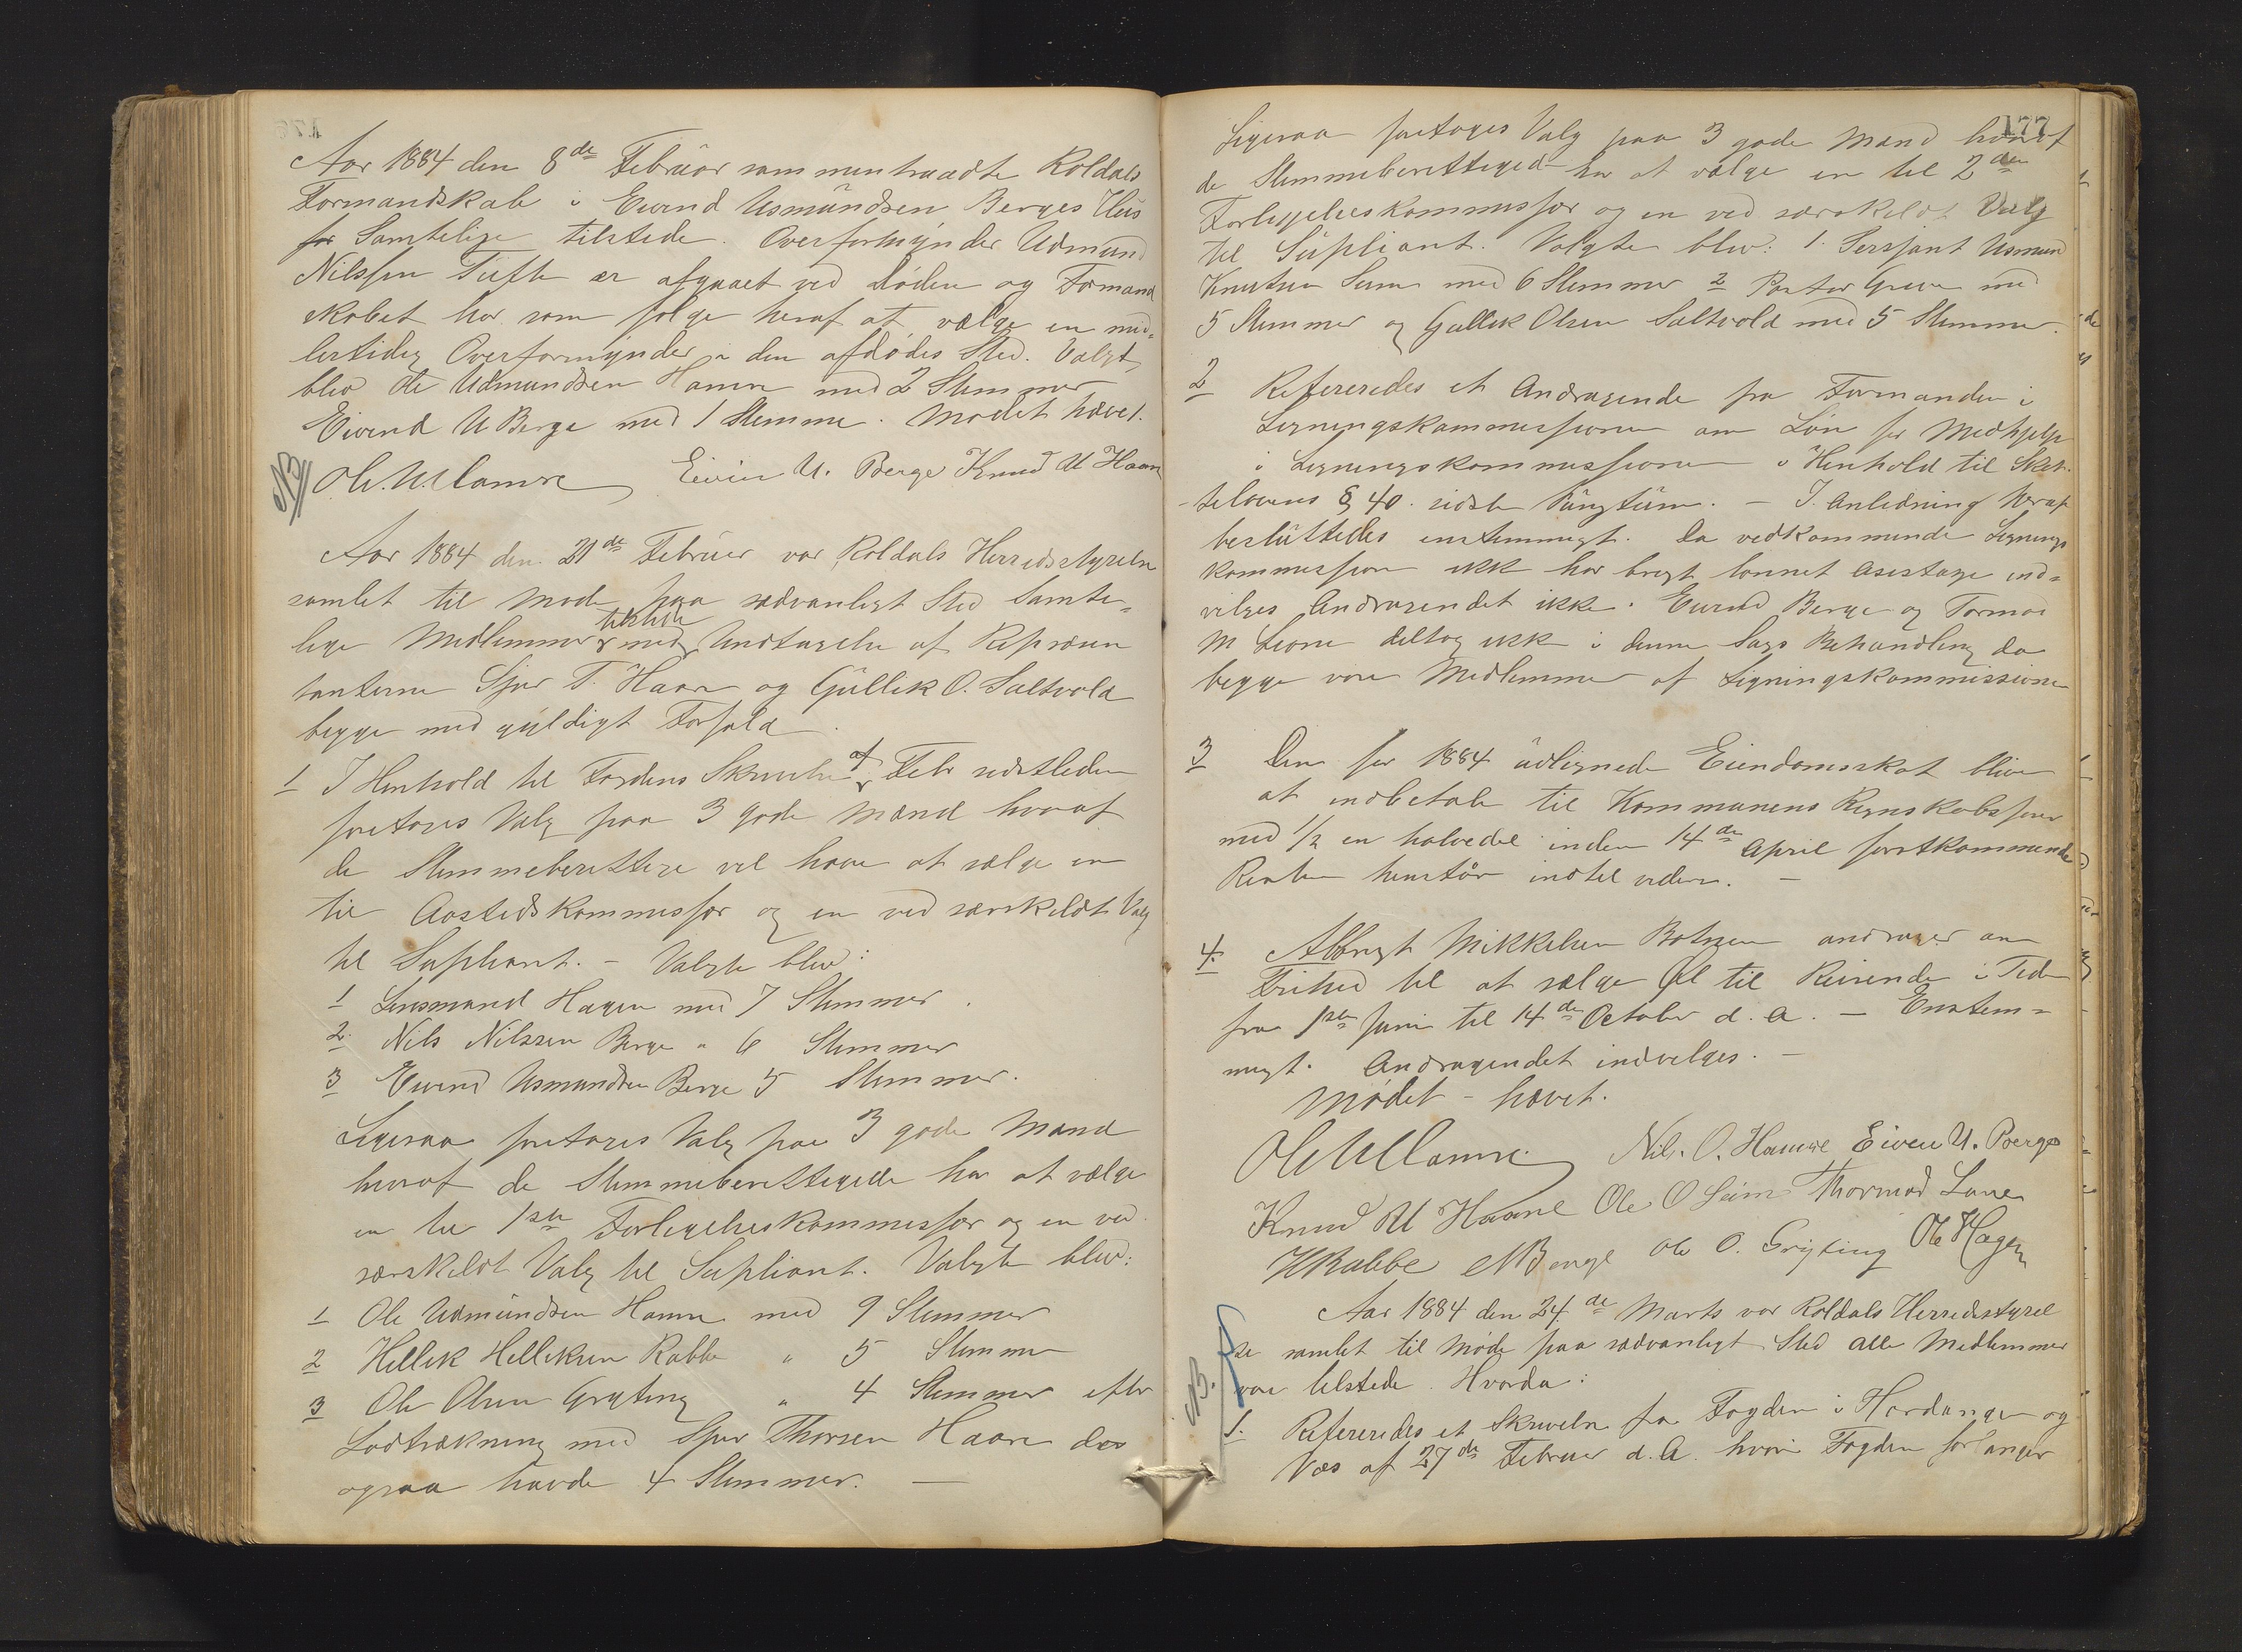 Aar 1884 den 8de Februar sammentraadte Roldals
Formandskab i Eivind Usmundsen Berges Hus
for Samtelige tilstede. Overformynder Udmund
Nilssen Tufte er afgaaet ved Døden og Formand
skabet har som følge heraf at vælge en mid-
lertidig Overformynder i den afdødes Sted. Valgt
blev Ole Udmundsen Hamre med 2 Stemmer
Eivend U Berge med 1 Stemme. Mødet hævet.
NB
Ole U Hamre Eivin U. Berge Knud U Haare
Aar 1884 den 21de Februar var Roldals Herredsstyrelse
samlet til Møde paa sædvanligt Sted Samte-
tilstede
lige Medlemmer med Undtagelse af Repræsen
tanterne Sjur T. Haare og Gullik O. Saltvold
begge med gyldigt Forfald.
1 I Henhold til Fogdens Skrivelse af Febr sidstleden
foretoges Valg paa 3 gode Mænd hvoraf
de Stemmeberettige vil have at vælge en
til Aastedskommissær og en ved særskildt Valg
til Supliant. – Valgte blev:
1 Lensmand Hagen med 7 Stemmer.
2. Nils Nilssen Berge " 6 Stemmer
3 Eivind Usmundsen Berge 5 Stemmer.
Ligesaa foretoges Valg paa 3 gode Mænd
hvoraf de Stemmeberettigede har at vælge
en til 1ste Forligelseskommissær og en ved
særskildt Valg til Supliant. Valgte blev:
1 Ole Udmundsen Hamre med 9 Stemmer
2 Hellik Helliksen Rabbe " 5 Stemmer
3 Ole Olsen Gryting " 4 Stemmer efter
Lodtrækning med Sjur Thorsen Haare der
ogsaa havde 4 Stemmer. —
177
Ligesaa foretoges Valg paa 3 gode Mænd hvoraf
de Stemmeberettigede har at vælge en til 2den
Forligelseskommissær og en ved særskildt Valg
til Supliant. Valgte blev: 1. Sersjant Usmund
Knutsen Seim med 6 Stemmer 2 Pastor Green med
5 Stemmer og Gullik Olsen Saltvold med 5 Stemmer.
2 Refereredes et Andragende fra Formanden i
Ligningskommissionen om Løn for Medhjelp
i Ligningskommissionen i Henhold til Skat-
telovens § 40. sidste Punktum. – I Anledning heraf
besluttedes enstemmigt. Da vedkommende Lignings
kommission ikke har brugt lønnet Asistage ind-
vilges Andragendet ikke. Eivind Berge og Tormod
M Leone deltog ikke i denne Sags Behandling da
begge vare Medlemmer af Ligningskommissionen
3 Den for 1884 udlignede Eiendomsskat bliver
at indbetale til Kommunens Regnskabsfører
med 1/2 en halvedel inden 14de April førstkommende
Resten henstår indtil videre. —
4. Albregt Mikkelsen Botnen andrager om
Frihed til at sælge Øl til Reisende i Tiden
fra 1ste Juni til 14de October d. A. – Enstem-
migt. Andragendet indvilges. —
Mødet – hævet.
Ole U Hamre. Nils. O. Hamre Eiven U. Berge
Knud U Haare Ole O Seim Thormod Lone
H Rabbe N Berge Ole O. Gryting Ole Hagen
Aar 1884 den 24de Marts var Roldals Herredsstyrel
se samlet til Møde paa sædvanligt Sted alle Medlemmer
vare tilstede. Hvorda:
NB.
1. Refereredes et Skrivelse fra Fogden i Hardanger og
Vos af 27de Februar d. A. hvori Fogden forlanger